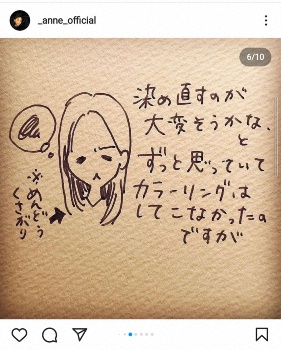 _anne_official
6/10
染め直すのが
大変そうかな、
と
ずっと思っていて
カラーリングは
してこなかったの
ですが
※めんどう
くさがり